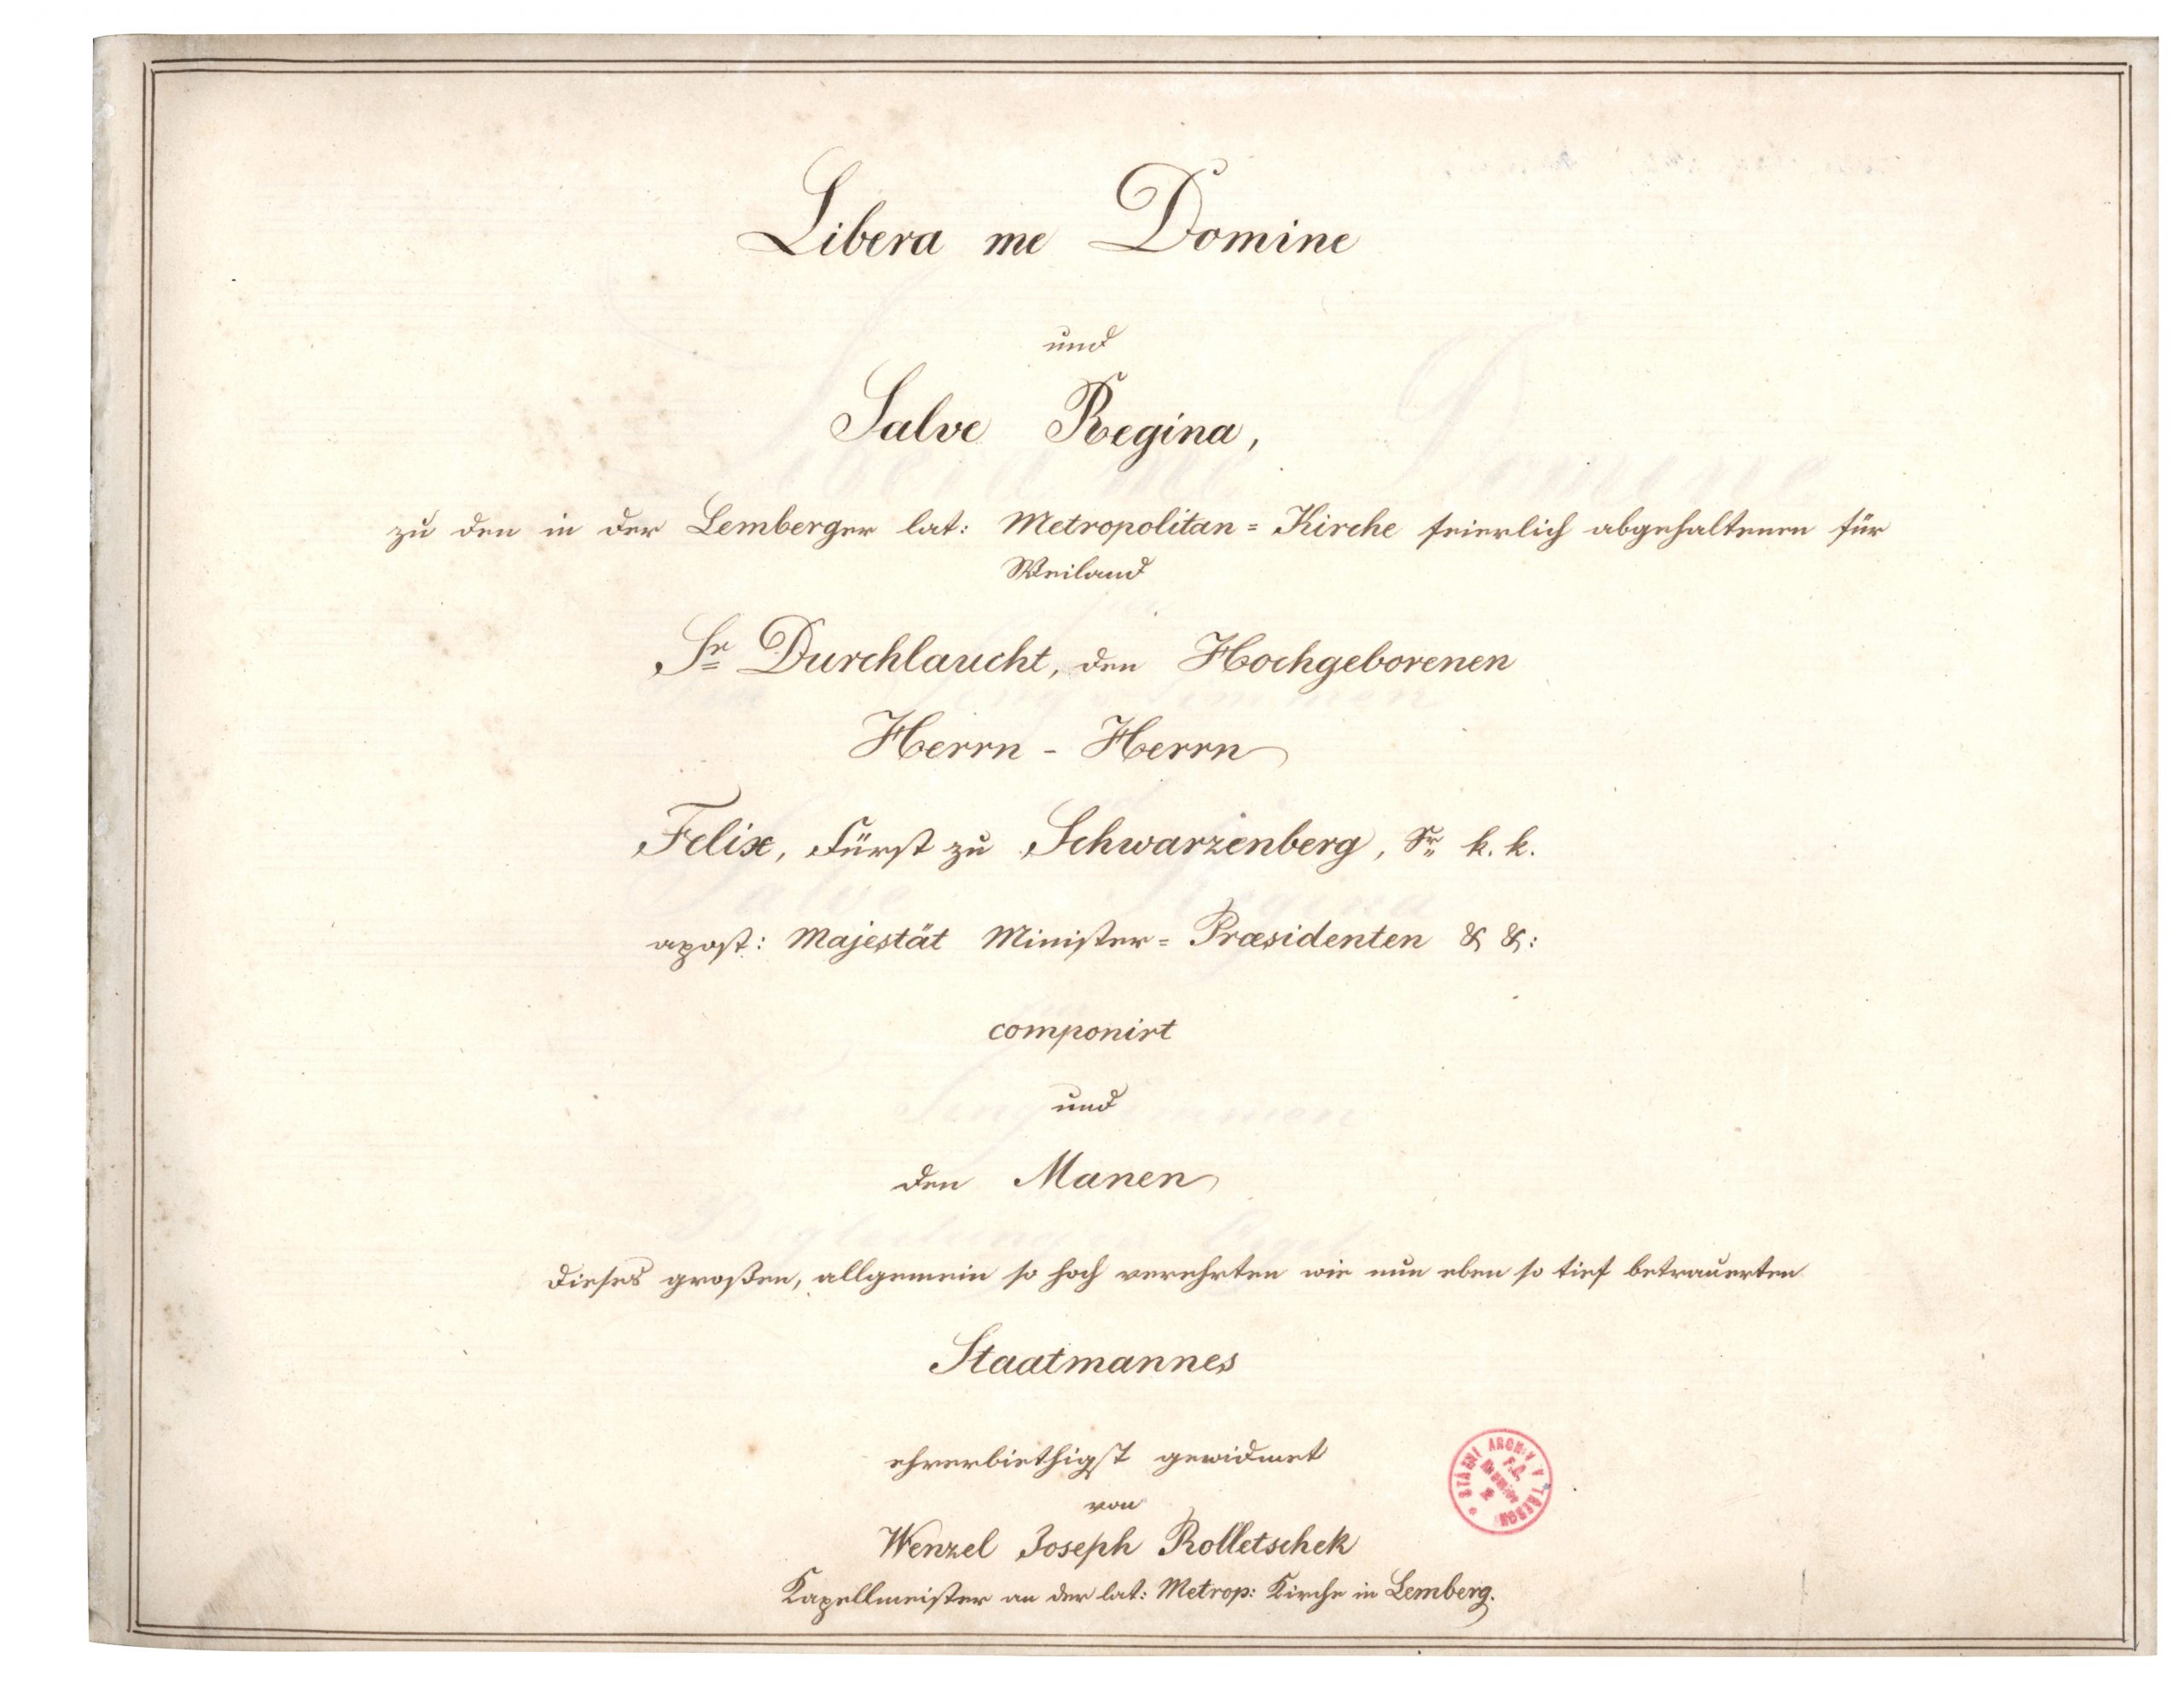 Libera me Domine
und
Salve Regina,
zu den in der Lemberger lat: Metropolitan = Kirche feierlich abgehaltenen für
Weiland
Sr Durchlaucht, den Hochgeborenen
Herrn - Herrn
Felix, Fürst zu Schwarzenberg, Sr k. k.
apost: Majestät Minister = Præsidenten & &:
componirt
und
den Manen
dieses großen, allgemein so hoch verehrten wie nun eben so tief betrauerten
Staatmannes
ehrerbiethigst gewidmet
von
Wenzel Joseph Rolletschek
Kapellmeister an der lat: Metrop: Kirche in Lemberg.
STÁTNÍ ARCHIV V TŘEBONI